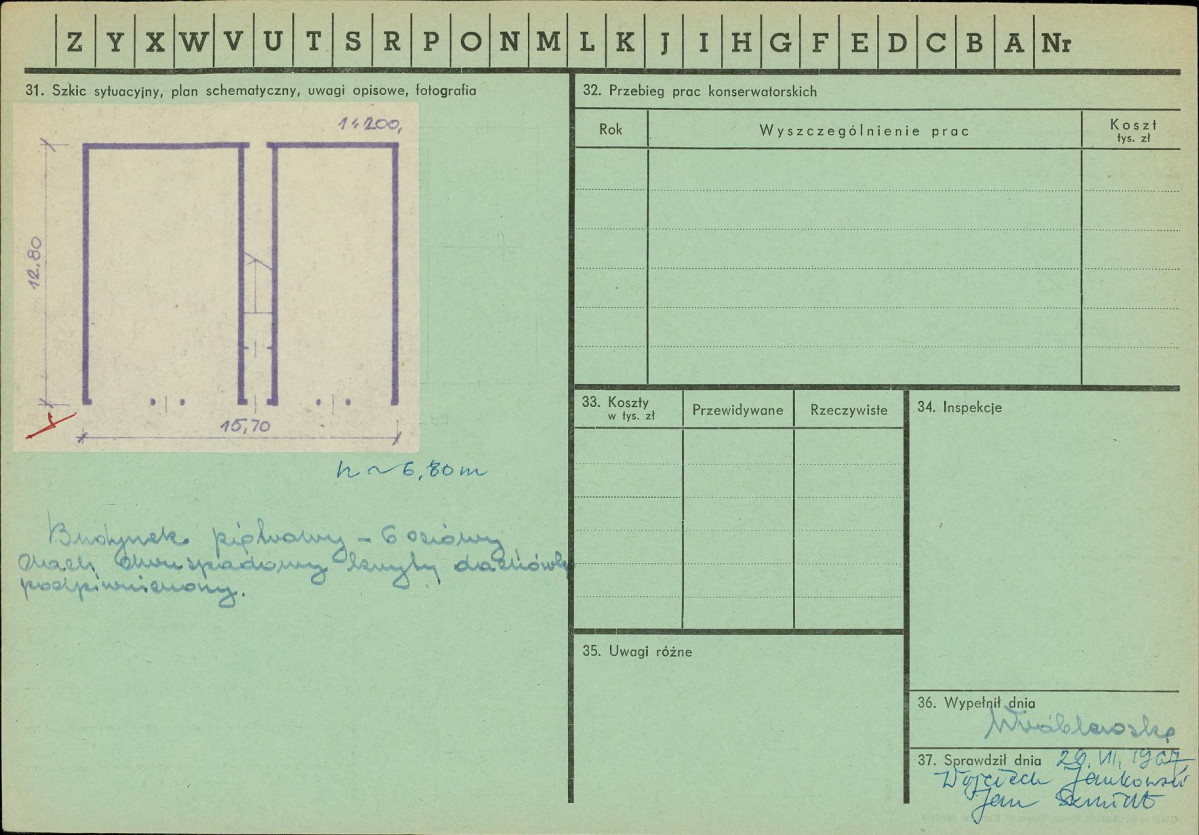 Z Y X W V U T S R P O N M L K J I H G F E D C B A Nr
31. Szkic sytuacyjny, plan schematyczny, uwagi opisowe, fotografia
1:200,
12.80
15,70
h ~ 6,80m
Budynek piętrowy - 6 osiowy
dach dwuspadowy kryty dachówką
podpiwniczony.
32. Przebieg prac konserwatorskich
Rok
Wyszczególnienie prac
Koszt
tys. zł
33. Koszty
w tys. zł
Przewidywane
Rzeczywiste
34. Inspekcje
35. Uwagi różne
36. Wypełnił dnia
Wróblewska
37. Sprawdził dnia 29. VI. 1967
Wojciech Jankowski
Jan